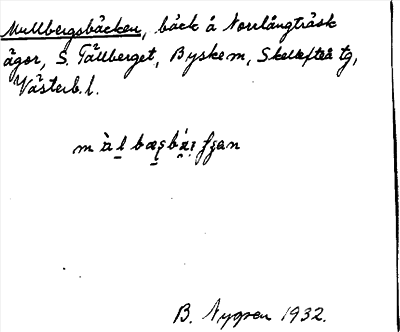 Mullbergsbäcken, bäck å Norrlångträsk
ägor, S. Tällberget, Byskem, Skellefteå tg,
Västerb. l.
B. Nygren 1932.